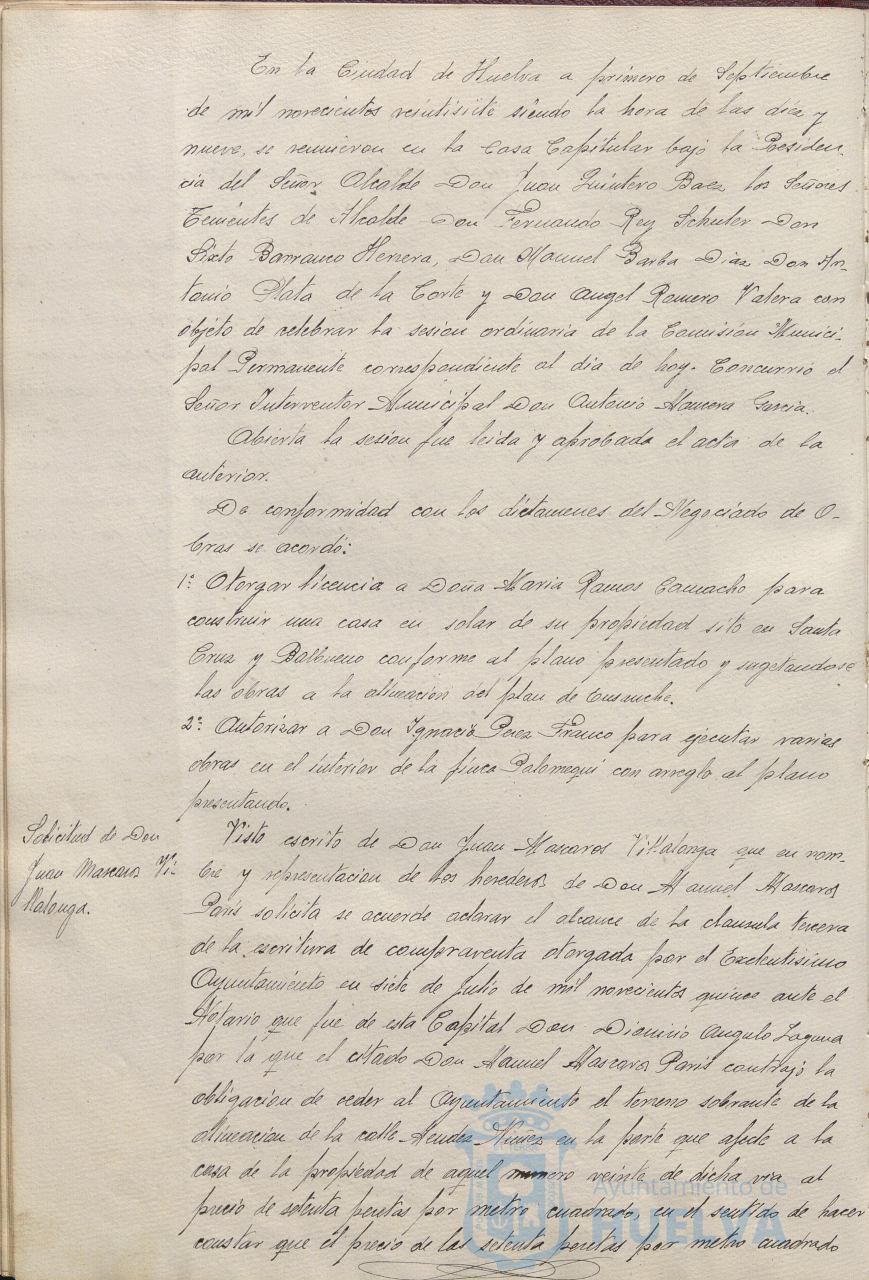 En la Ciudad de Huelva a primero de Septiembre
de mil novecientos veintisiete siendo la hora de las diez y
nueve, se reunieron en la Casa Capitular bajo la Presiden-
cia del Señor Alcalde Don Juan Quintero Baez los Señores
Tenientes de Alcalde Don Fernando Rey Schuler Don
Sixto Barranco Herrera, Don Manuel Barba Diaz Don An-
tonio Plata de la Corte y Don Angel Romero Valera con
objeto de celebrar la sesion ordinaria de la Comision Munici-
pal Permanente correspondiente al dia de hoy. Concurrió el
Señor Interventor Municipal Don Antonio Mancera Garcia.
Abierta la sesion fue leida y aprobada el acta de la
anterior.
De conformidad con los dictamenes del Negociado de O-
bras se acordó:
1º. Otorgar licencia a Doña Maria Ramos Camacho para
construir una casa en solar de su propiedad sito en Santa
Cruz y Balbueno conforme al plano presentado y sugetandose
las obras a la alineacion del plan de Ensanche.
2º. Autorizar a Don Ignacio Perez Franco para ejecutar varias
obras en el interior de la finca Palomequi con arreglo al plano
presentando.
Solicitud de Don
Juan Mascaros Vi-
llalonga.
Visto escrito de Don Juan Mascaros Villalonga que en nom-
bre y representacion de los herederos de Don Manuel Mascaros
Paris solicita se acuerde aclarar el alcance de la clausula tercera
de la escritura de compraventa otorgada por el Exelentisimo
Ayuntamiento en siete de Julio de mil novecientos quince ante el
Notario que fue de esta Capital Don Dionisio Angulo Laguna
por la que el citado Don Manuel Mascaros Paris contrajo la
obligacion de ceder al Ayuntamiento el terreno sobrante de la
alineacion de la calle Mendez Nuñez en la parte que afecte a la
casa de la propiedad de aquel numero veinte de dicha via al
precio de setenta pesetas por metro cuadrado, en el sentido de hacer
constar que el precio de las setenta pesetas por metro cuadrado
Ayuntamiento de
HUELVA